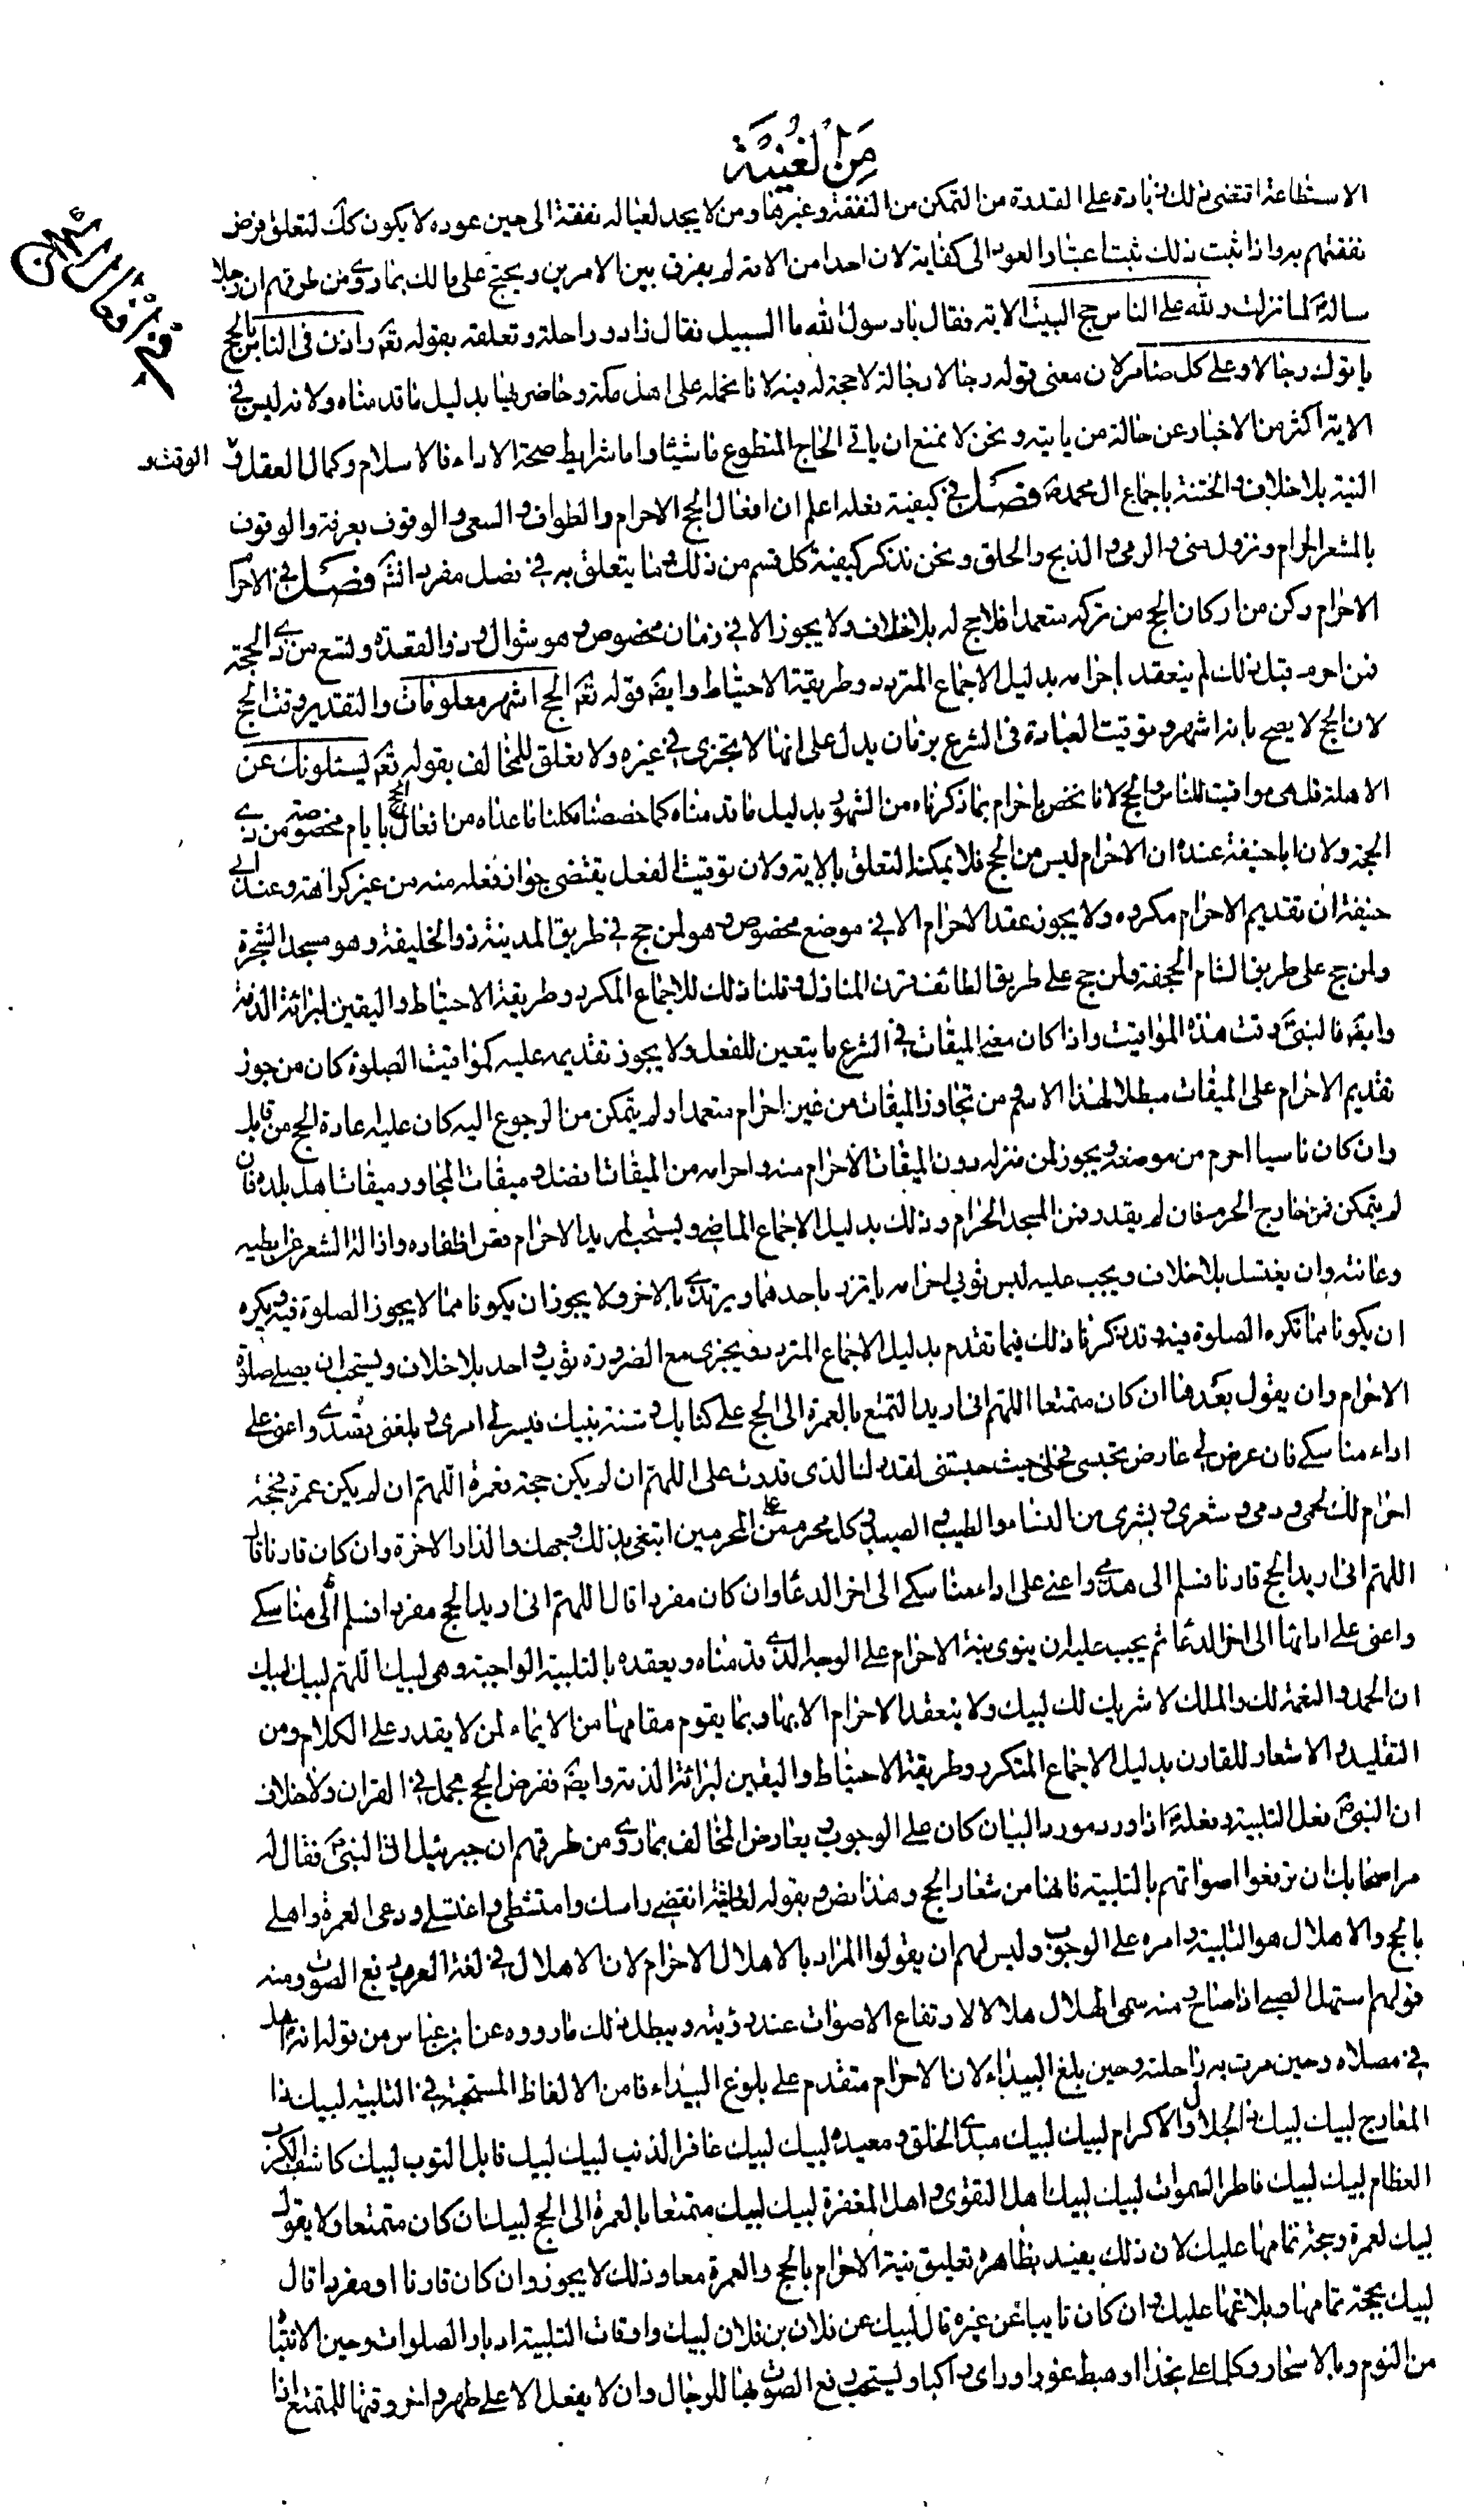 من الغنية
الاستطاعة اقتضى ذلك زيادة على القدرة من التمكن من النفقة وغيرها ومن لا يجد لعياله نفقة الى حين عوده لا يكون كك لتعلق فرض
نفقتهم به واذا ثبت ذلك ثبت اعتبار العود الى كفاية لان احدا من الامة لم يفرق بين الامرين ويحتج على مالك بما روي من طرقهم ان رجلا
ساله لما نزلت ولله على الناس حج البيت الاية فقال يا رسول الله ما السبيل فقال زاد وراحلة وتعلقه بقوله تعه واذن في الناس بالحج
ياتوك رجالا وعلى كل ضامر لان معنى قوله رجالا رجالة لا حجة له فيه لانا نحمله على اهل مكة وحاضريها بدليل ما قدمناه ولانه ليس في
الاية اكثر من الاخبار عن حالة من ياتيه ونحن لا نمنع ان ياتي الحاج المتطوع ماشيا واما شرايط صحة الاداء فالاسلام وكمال العقل و الوقت و
النية بلا خلاف والختنة باجماع ال محمد فصل في كيفية فعله اعلم ان افعال الحج الاحرام والطواف والسعي والوقوف بعرفة والوقوف
بالمشعر الحرام ونزول منى والرمي والذبح والحلق ونحن نذكر كيفية كل قسم من ذلك وما يتعلق به في فصل مفرد انشه فصل في الاحرا
الاحرام ركن من اركان الحج من تركه متعمدا فلا حج له بلا خلاف ولا يجوز الا في زمان مخصوص وهو شوال وذو القعدة وتسع من ذي الحجة
فمن احرم قبل ذلك لم ينعقد احرامه بدليل الاجماع المتردد وطريقة الاحتياط وايضه قوله تعه الحج اشهر معلومات والتقدير وقت الحج
لان الحج لا يصح بانه اشهر وتوقيت العبادة في الشرع بزمان يدل على انها لا تجزي في غيره ولا تعلق للمخالف بقوله تعه يسئلونك عن
الاهلة قل هي مواقيت للناس والحج لانا نخص احرام بما ذكرناه من الشهور بدليل ما قدمناه كما خصصنا كلنا ما عداه من افعال الحج بايام مخصوصة من ذي
الحجة ولان ابا حنيفة عنده ان الاحرام ليس من الحج فلا يمكنه التعلق بالاية ولان توقيت الفعل يقتضي جواز فعله منه من غير كراهة وعند ابي
حنيفة ان تقديم الاحرام مكروه ولا يجوز عقد الاحرام الا في موضع مخصوص وهو لمن حج في طريق المدينة ذو الحليفة وهو مسجد الشجرة
ولمن حج على طريق الشام الجحفة ولمن حج على طريق الطائف قرن المنازل وقلنا ذلك للاجماع المكرر وطريقة الاحتياط واليقين لبرائة الذمة
وايضه فالنبي وقت هذه المواقيت واذا كان معنى الميقات في الشرع ما يتعين للفعل ولا يجوز تقديمه عليه كمواقيت الصلوة كان من جوز
تقديم الاحرام على الميقات مبطلا لهذا الاسم من تجاوز الميقات من غير احرام متعمدا ولم يتمكن من الرجوع اليه كان عليه عادة الحج من قابل
وان كان ناسيا احرم من موضعه ويجوز لمن منزله دون الميقات الاحرام منه واحرامه من الميقات افضل وميقات المجاور ميقات اهل بلده فان
لم يتمكن فمن خارج الحرم فان لم يقدر فمن المسجد الحرام وذلك بدليل الاجماع الماضي ويستحب لمريد الاحرام قص اظفاره وازالة الشعر عن ابطيه
وعانته وان يغتسل بلا خلاف ويجب عليه لبس ثوبي احرامه ياتزر باحدهما ويرتدي بالاخر ولا يجوز ان يكونا مما لا يجوز الصلوة فيه ويكره
ان يكونا مما تكره الصلوة فيه وقد ذكرنا ذلك فيما تقدم بدليل الاجماع المتردد ويجزي مع الضرورة ثوب واحد بلا خلاف ويستحب ان يصلي صلوة
الاحرام وان يقول بعدها ان كان متمتعا اللهم اني اريد التمتع بالعمرة الى الحج على كتابك وسنة نبيك فيسر لي امري وبلغني قصدي واعني على
اداء مناسكي فان عرض لي عارض يحبسني فحلني حيث حبستني لقدرك الذي قدرت علي اللهم ان لم يكن حجة فعمرة اللهم ان لم يكن عمرة فحجة
احرم لك لحمي ودمي وشعري وبشري من النساء والطيب والصيد وكل محرم على المحرمين ابتغي بذلك وجهك والدار الاخرة وان كان قارنا قال
اللهم اني اريد الحج قارنا فسلم الى هديي واعني على اداء مناسكي الى اخر الدعا وان كان مفردا قال اللهم اني اريد الحج مفردا فسلم الي مناسكي
واعني على ادائها الى اخر الدعا ثم يجب عليه ان ينوي نية الاحرام على الوجه الذي قدمناه ويعقده بالتلبية الواجبة وهي لبيك اللهم لبيك لبيك
ان الحمد والنعمة لك والملك لا شريك لك لبيك ولا ينعقد الاحرام الا بها وبما يقوم مقامها من الايماء لمن لا يقدر على الكلام ومن
التقليد والاشعار للقارن بدليل الاجماع المتكرر وطريقة الاحتياط واليقين لبرائة الذمة وايضه ففرض الحج مجمل في القران ولا خلاف
ان النبي فعل التلبية وفعله اذا ورد مورد البيان كان على الوجوب ويعارض المخالف بما روي من طرقهم ان جبرئيل اتى النبي فقال له
مر اصحابك ان يرفعوا اصواتهم بالتلبية فانها من شعار الحج وهذا نص وبقوله لعائشة انقضي راسك وامتشطي واغتسلي ودعي العمرة واهلي
بالحج والاهلال هو التلبية وامره على الوجوب وليس لهم ان يقولوا المراد بالاهلال الاحرام لان الاهلال في لغة العرب رفع الصوت ومنه
قولهم استهل الصبي اذا صاح ومنه سمي الهلال هلالا لارتفاع الاصوات عند رؤيته ويبطل ذلك ما رووه عن ابن عباس من قوله انه اهل
في مصلاه وحين مرت به راحلته وحين بلغ البيداء لان الاحرام متقدم على بلوغ البيداء فامن الالفاظ المستحبة في التلبية لبيك ذا
المعارج لبيك لبيك ذا الجلال والاكرام لبيك لبيك مبدي الخلق ومعيده لبيك لبيك غافر الذنب لبيك لبيك قابل التوب لبيك كاشف الكرب
العظام لبيك لبيك فاطر السموات لبيك لبيك اهل التقوى واهل المغفرة لبيك لبيك متمتعا بالعمرة الى الحج لبيك ان كان متمتعا ولا يقول
لبيك لعمرة وحجة تمامها عليك لان ذلك يفيد بظاهره تعليق نية الاحرام بالحج والعمرة معا وذلك لا يجوز وان كان قارنا او مفردا قال
لبيك بحجة تمامها وبلاغها عليك وان كان نايبا عن غيره قال لبيك عن فلان بن فلان لبيك واوقات التلبية ادبار الصلوات وحين الانتباه
من النوم وبالاسحار وكلما على نجدا او هبط غورا وراى راكبا ويستحب رفع الصوت بها للرجال وان لا يفعل الا على طهر واخر وقتها للمتمتع اذا